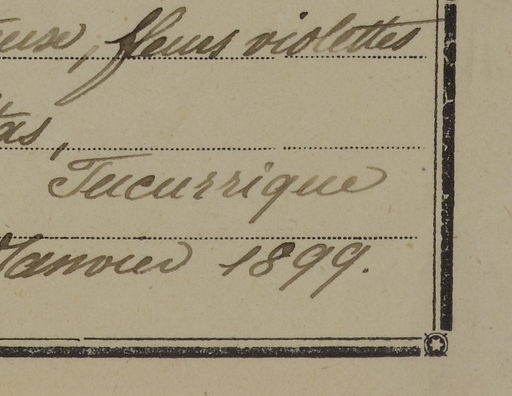 fleurs violettes
Tucurrique
Janvier 1899.